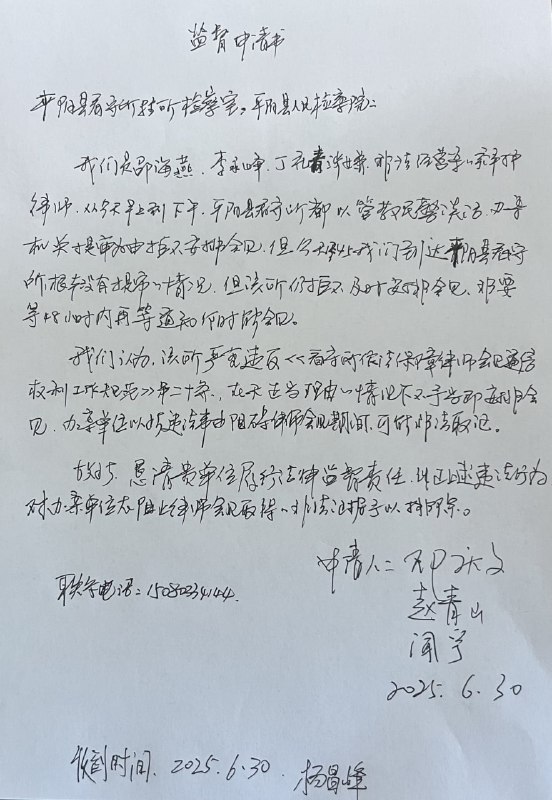 监督申请书
平阳县看守所驻所检察室、平阳县人民检察院:
我们是邵海燕、李永峰、丁礼青涉嫌非法经营案家属
律师,从今天早上到下午,平阳县看守所都以管教民警谈话、办案
机关提审为由拒不安排会见,但今天我们到达平阳县看守
所根本没有提审情况,但该所仍拒不及时安排会见,非要
等48小时内再等通知何时能会见。
我们认为,该所严重违反《看守所依法保障律师会见通信
权利工作规范》第二十条,在无正当理由情况下不予当即安排会
见,办案单位以违法事由阻碍律师会见期间,可能非法取证。
故此,恳请贵单位履行法律监督责任,纠正上述违法行为
对办案单位在阻止律师会见取得非法证据予以排除。
申请人:
联系电话:15080234144.
赵青山
闻宇
2025.6.30
收到时间.2025.6.30 杨昌峰